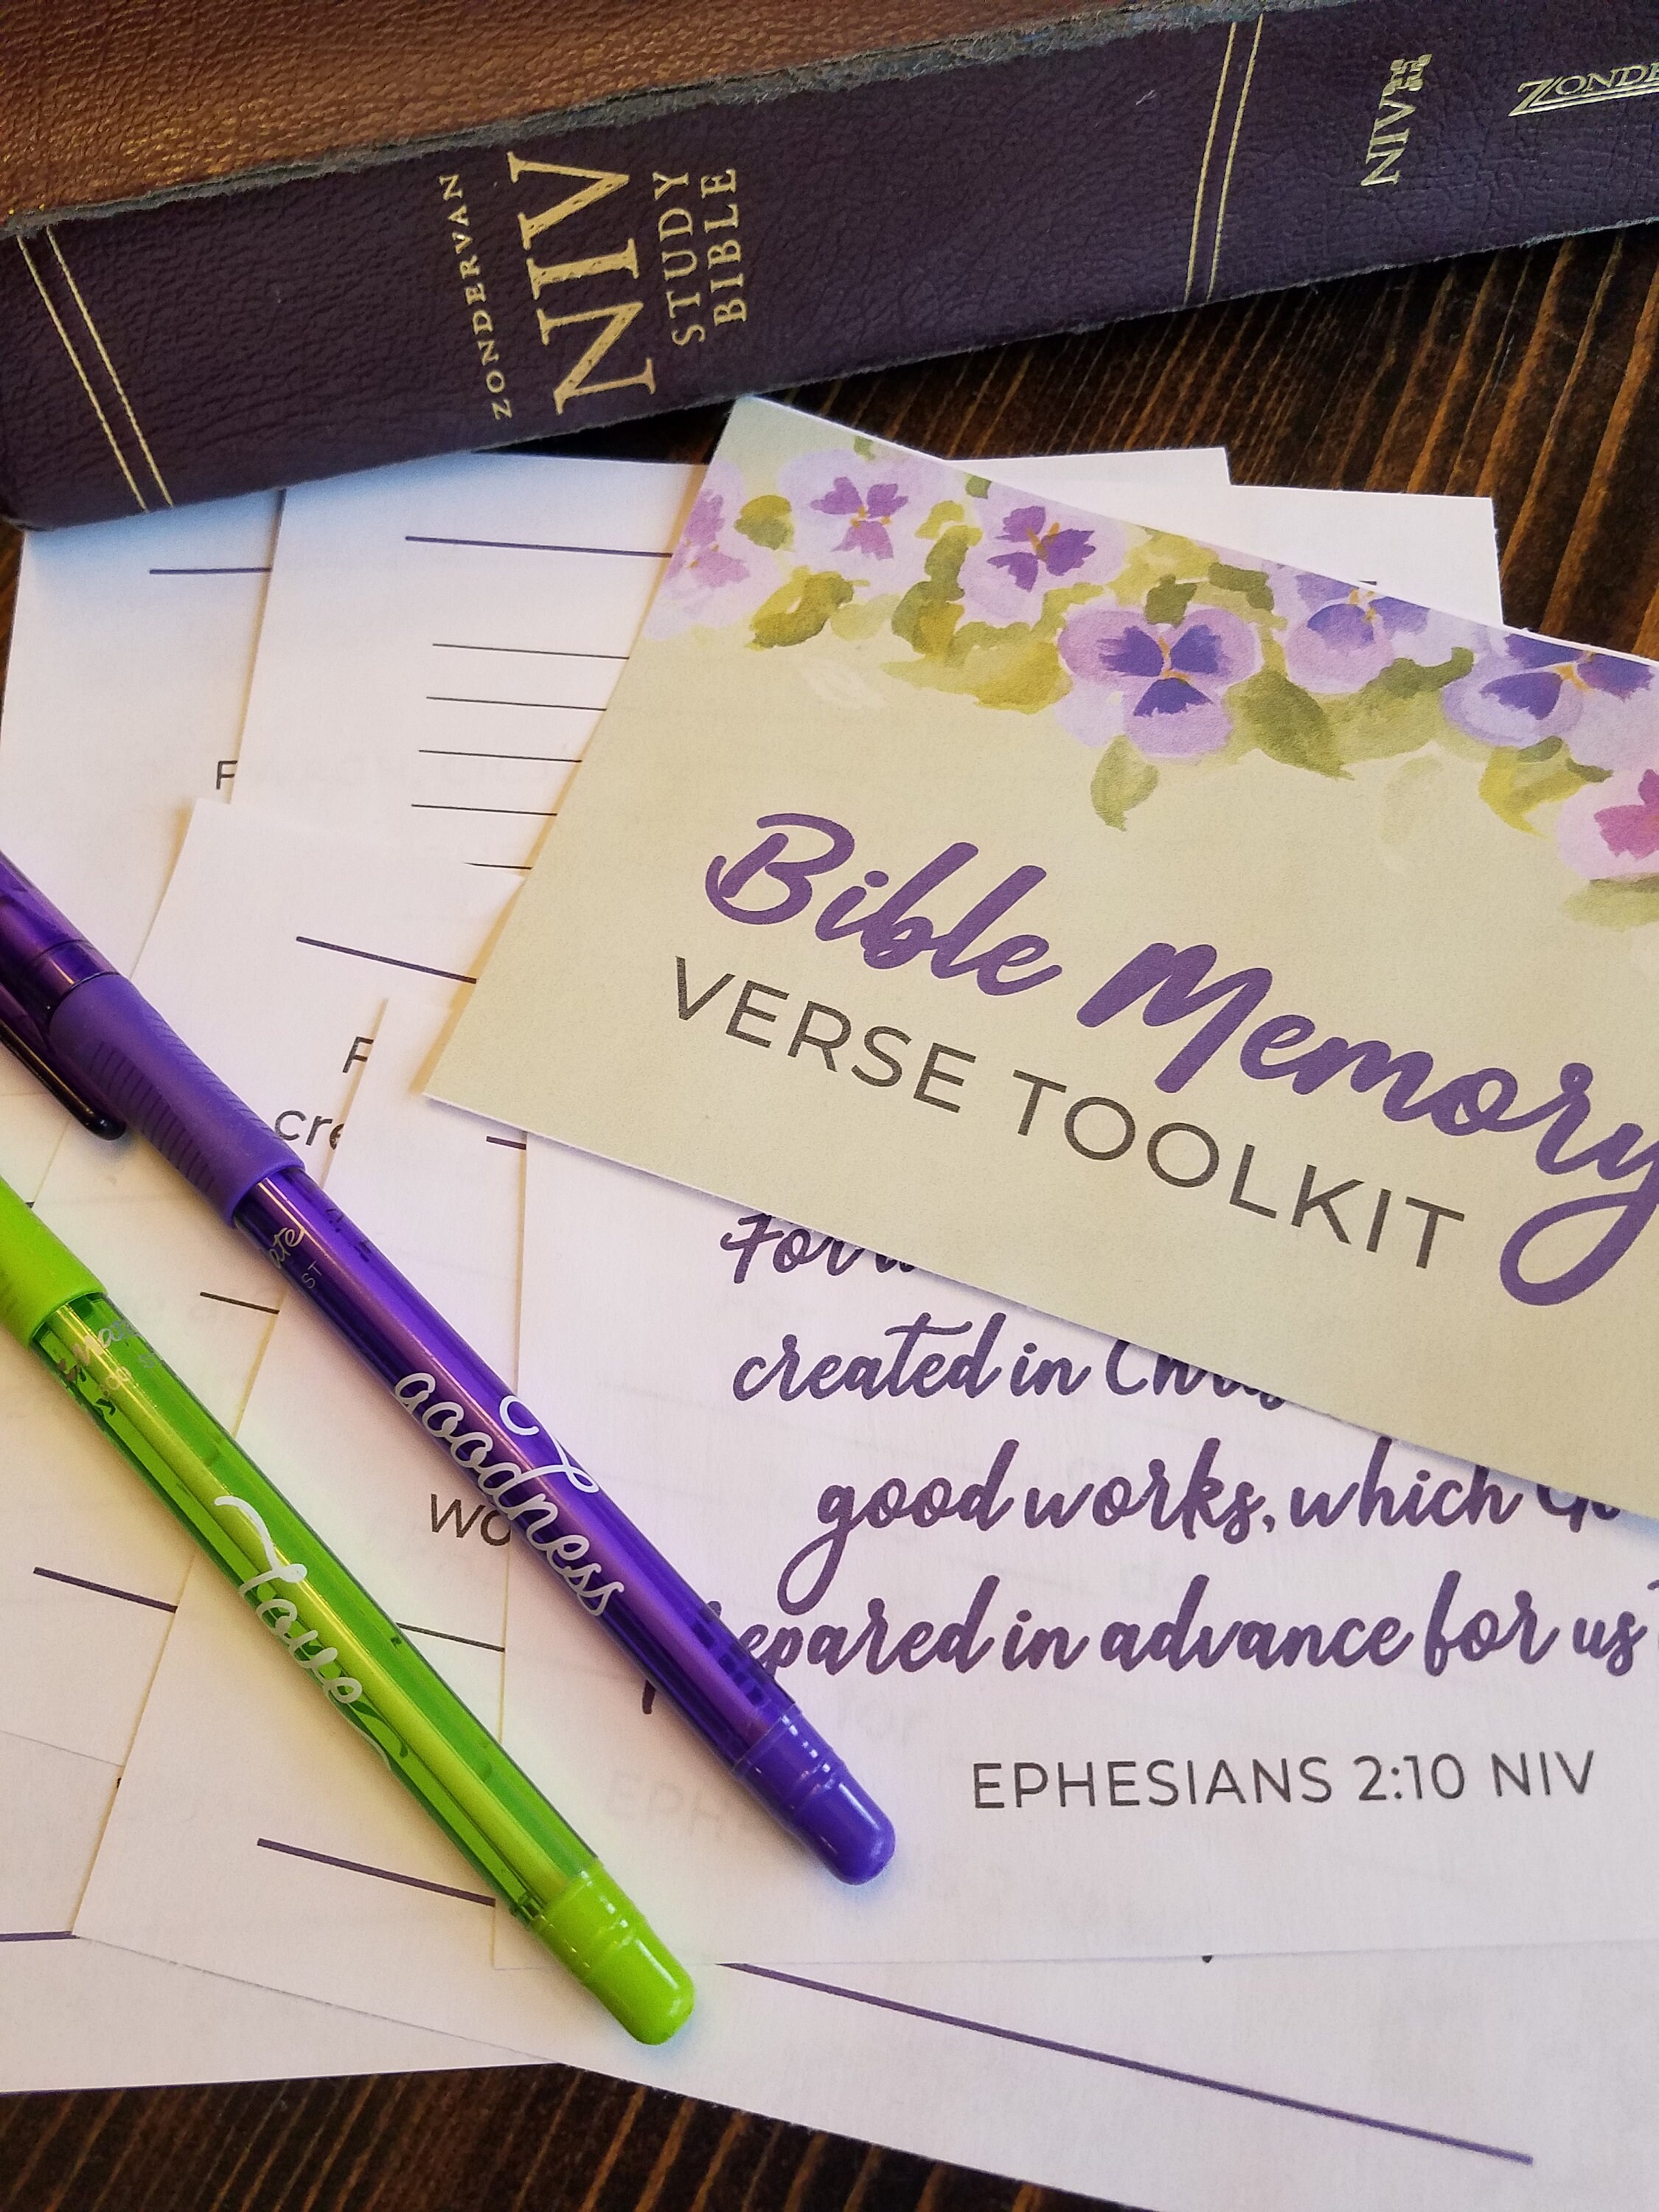 ZONDERVAN
NIV
STUDY
BIBLE
NIV
ZONDE
Bible Memory
VERSE TOOLKIT
F
F
cre
wo
For
created in Chris
good works, which
epared in advance for us
EPHESIANS 2:10 NIV
goodness
Love